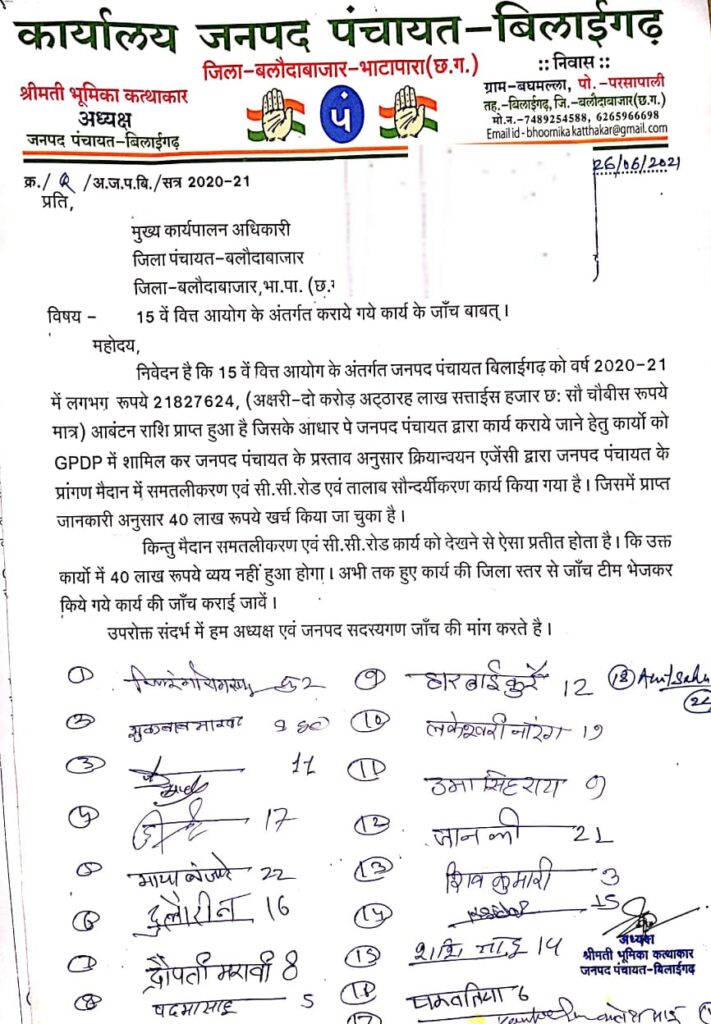 कार्यालय जनपद पंचायत-बिलाईगढ़
जिला-बलौदाबाजार-भाटापारा(छ.ग.)
:: निवास ::
श्रीमती भूमिका कत्थाकार
अध्यक्ष
जनपद पंचायत-बिलाईगढ़
पं
ग्राम-बघमल्ला, पो.-परसापाली
तह.-बिलाईगढ़, जि.-बलौदाबाजार(छ.ग.)
मो.न.-7489254588, 6265966698
Email id - bhoomikakatthakar@gmail.com
26/06/2021
क्र./ /अ.ज.प.बि./सत्र 2020-21
प्रति,
मुख्य कार्यपालन अधिकारी
जिला पंचायत-बलौदाबाजार
जिला-बलौदाबाजार,भा.पा. (छ.ग
विषय - 15 वें वित्त आयोग के अंतर्गत कराये गये कार्य के जाँच बाबत्।
महोदय,
निवेदन है कि 15 वें वित्त आयोग के अंतर्गत जनपद पंचायत बिलाईगढ़ को वर्ष 2020-21
में लगभग रूपये 21827624, (अक्षरी-दो करोड़ अट्ठारह लाख सत्ताईस हजार छः सौ चौबीस रूपये
मात्र) आबंटन राशि प्राप्त हुआ है जिसके आधार पे जनपद पंचायत द्वारा कार्य कराये जाने हेतु कार्यो को
GPDP में शामिल कर जनपद पंचायत के प्रस्ताव अनुसार क्रियान्वयन एजेंसी द्वारा जनपद पंचायत के
प्रांगण मैदान में समतलीकरण एवं सी.सी.रोड एवं तालाब सौन्दर्यीकरण कार्य किया गया है। जिसमें प्राप्त
जानकारी अनुसार 40 लाख रूपये खर्च किया जा चुका है।
किन्तु मैदान समतलीकरण एवं सी.सी.रोड कार्य को देखने से ऐसा प्रतीत होता है। कि उक्त
कार्यो में 40 लाख रूपये व्यय नहीं हुआ होगा। अभी तक हुए कार्य की जिला स्तर से जाँच टीम भेजकर
किये गये कार्य की जाँच कराई जावें।
उपरोक्त संदर्भ में हम अध्यक्ष एवं जनपद सदस्यगण जाँच की मांग करते है।
①
②
③ 11
④ 17
⑤ माया 22
⑥ दुलौरीन 16
⑦ द्रौपती मरावी 8
⑧ पदमा साहू 5
⑨ 12
⑩ लकेश्वरी नारंग 19
⑪ उमा सिहराय 9
⑫ 21
⑬ शिव कुमारी 3
⑭ 15
⑮ 14
⑯ 6
17
⑱ Sahu
अध्यक्ष
श्रीमती भूमिका कत्थाकार
जनपद पंचायत-बिलाईगढ़